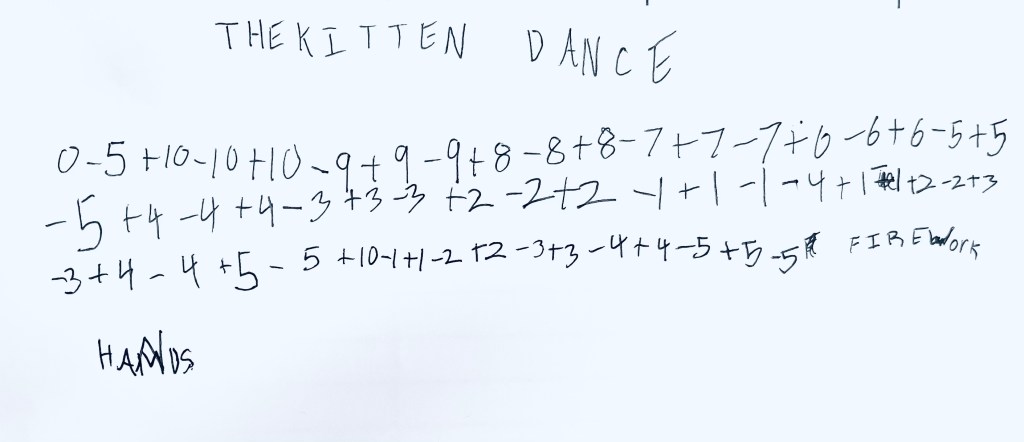 THE KITTEN DANCE
0-5+10-10+10-9+9-9+8-8+8-7+7-7+6-6+6-5+5
-5+4-4+4-3+3-3+2-2+2-1+1-1-4+1 +2-2+3
-3+4-4+5-5+10-1+1-2+2-3+3-4+4-5+5-5 FIREWORK
HANDS